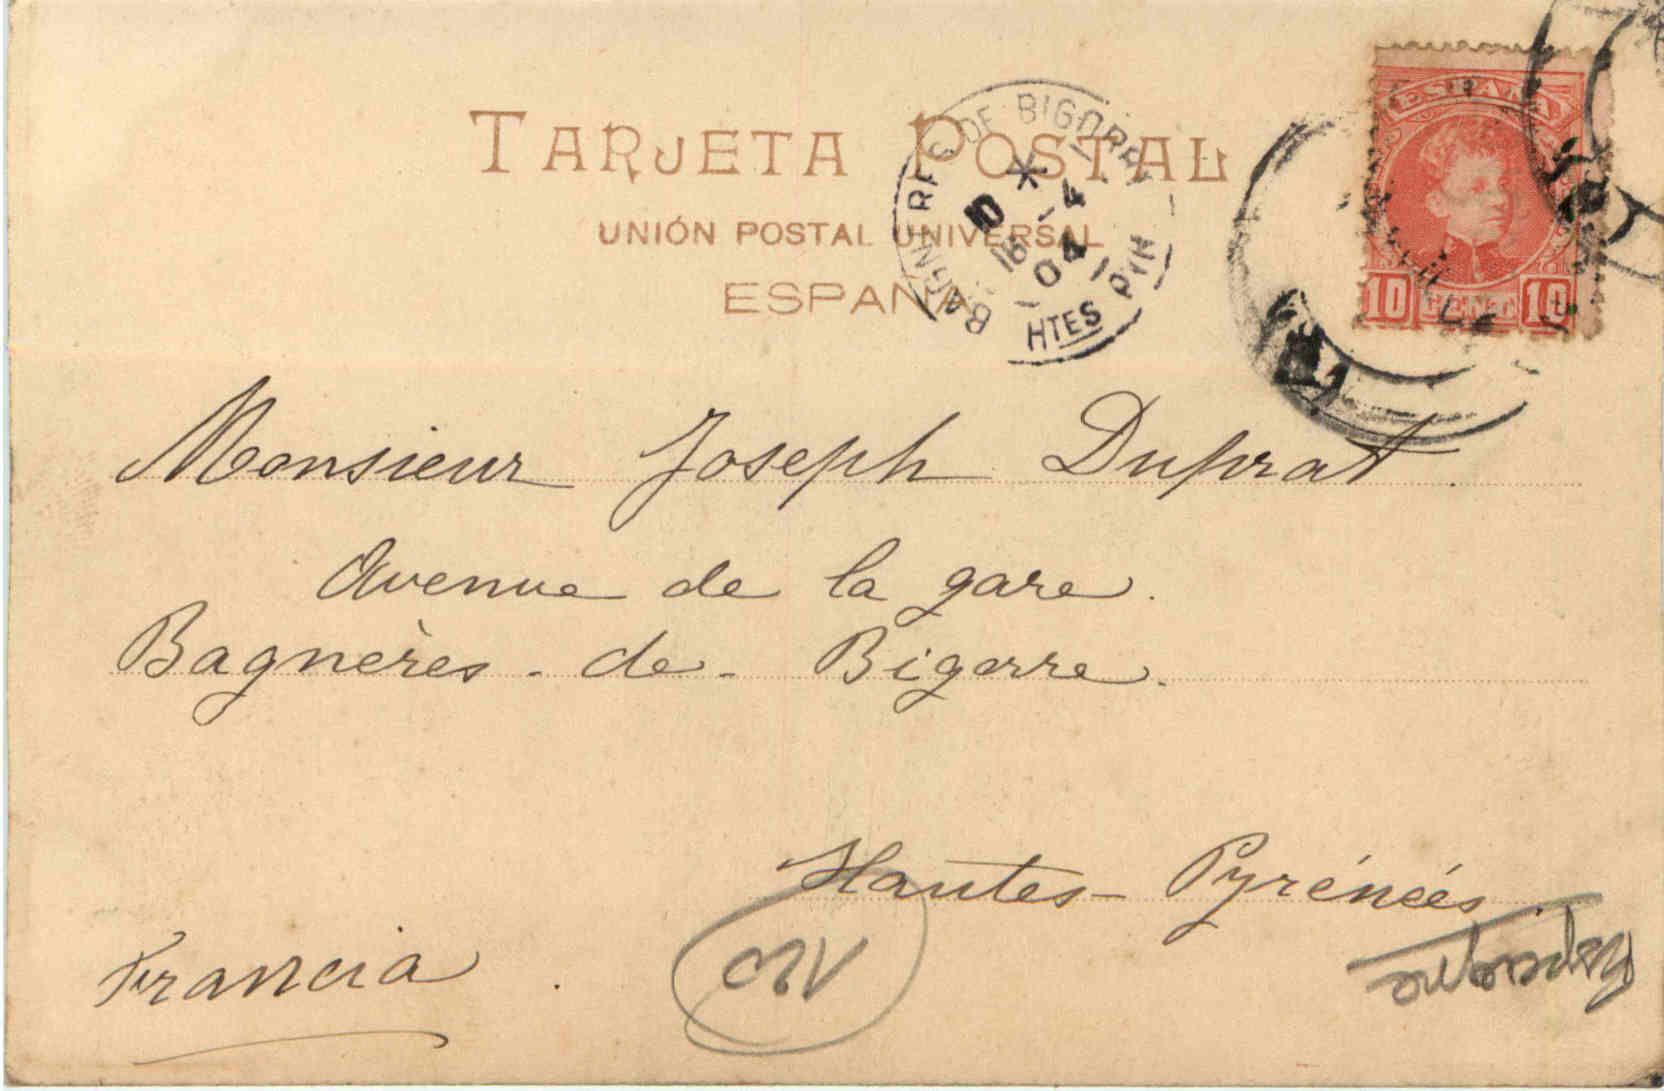 TARJETA POSTAL
UNIÓN POSTAL UNIVERSAL
ESPAÑA
BAGNERES DE BIGORRE
18 -4
04
HTES PYR
ESPAÑA
10 CENT 10
Monsieur Joseph Duprat
Avenue de la gare.
Bagnères-de-Bigorre.
Hautes-Pyrénées.
Francia.
Espagne